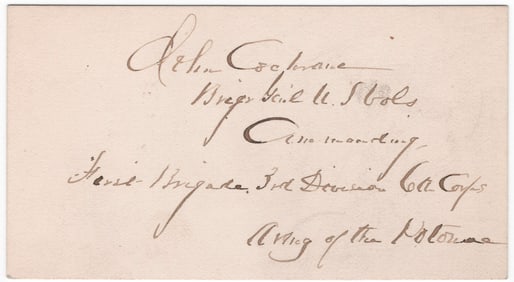 John Cochrane
Brigr Genl U. S Vols.
Commanding,
First Brigade, 3rd Division 6th Corps
Army of the Potomac